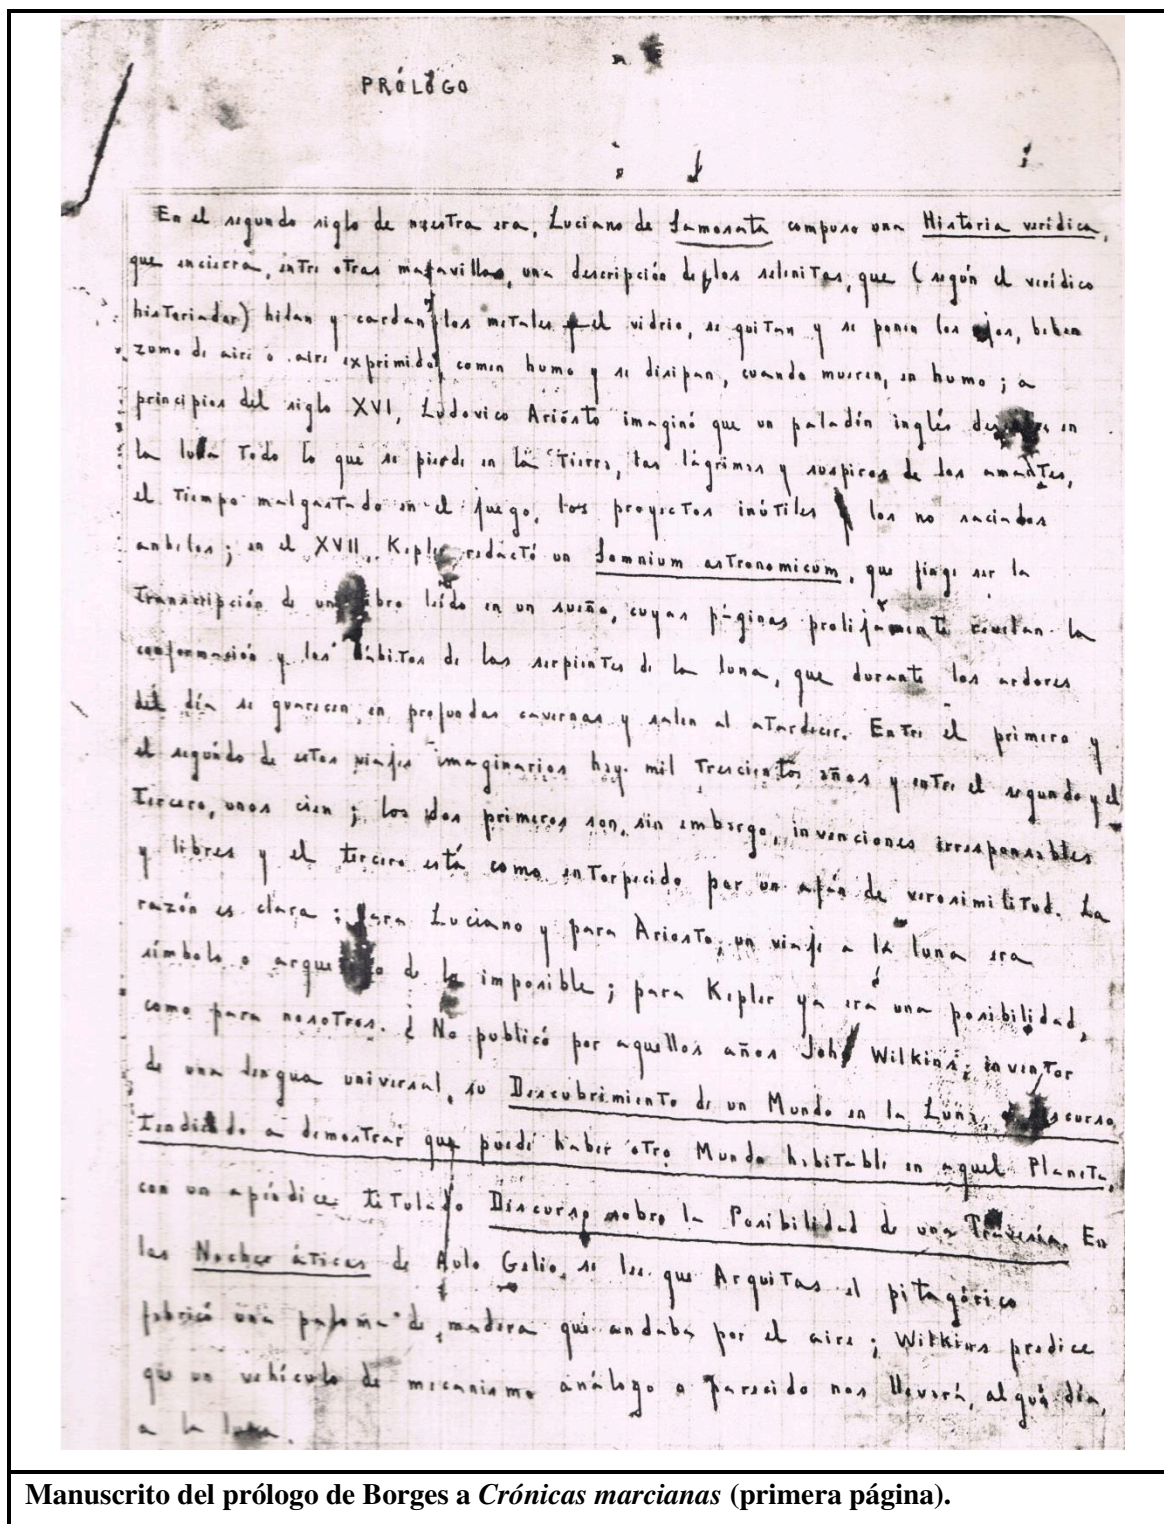 PRÓLOGO
En el segundo siglo de nuestra era, Luciano de Samosata compuso una Historia verídica,
que encierra, entre otras maravillas, una descripción de los selenitas, que (según el verídico
historiador) hilan y cardan los metales y el vidrio, se quitan y se ponen los ojos, beben
zumo de aire o aire exprimido, comen humo y se disipan, cuando mueren, en humo; a
principios del siglo XVI, Ludovico Ariosto imaginó que un paladín inglés en
la luna todo lo que se pierde en la Tierra, las lágrimas y suspiros de los amantes,
el tiempo malgastado en el juego, los proyectos inútiles los no saciados
anhelos; en el XVII, Kepler redactó un Somnium astronomicum, que finge ser la
transcripción de un libro leído en un sueño, cuyas páginas prolijamente revelan la
conformación y los hábitos de las serpientes de la luna, que durante los ardores
del día se guarecen en profundas cavernas y salen al atardecer. Entre el primero y
el segundo de estos viajes imaginarios hay mil trescientos años y entre el segundo y el
tercero, unos cien; los dos primeros son, sin embargo, invenciones irresponsables
y libres y el tercero está como entorpecido por un afán de verosimilitud. La
razón es clara; para Luciano y para Ariosto, un viaje a la luna era
símbolo o arquetipo de lo imposible; para Kepler ya era una posibilidad,
como para nosotros. ¿No publicó por aquellos años John Wilkins, inventor
de una lengua universal, su Descubrimiento de un Mundo en la Luna, discurso
tendiendo a demostrar que puede haber otro Mundo habitable en aquel Planeta,
con un apéndice titulado Discurso sobre la Posibilidad de una Travesía. En
las Noches áticas de Aulo Gelio, se lee que Arquitas el pitagórico
fabricó una paloma de madera que andaba por el aire; Wilkins predice
que un vehículo de mecanismo análogo o parecido nos llevará, algún día,
a la luna.
Manuscrito del prólogo de Borges a Crónicas marcianas (primera página).